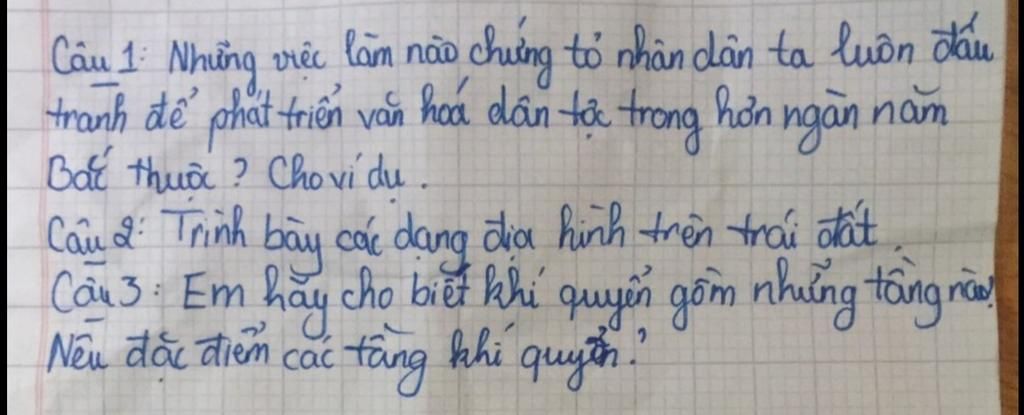 Câu 1: Những việc làm nào chứng tỏ nhân dân ta luôn đấu
tranh để phát triển văn hoá dân tộc trong hơn ngàn năm
Bắc thuộc? Cho ví dụ.
Câu 2: Trình bày các dạng địa hình trên trái đất.
Câu 3: Em hãy cho biết khí quyển gồm những tầng nào?
Nêu đặc điểm các tầng khí quyển?